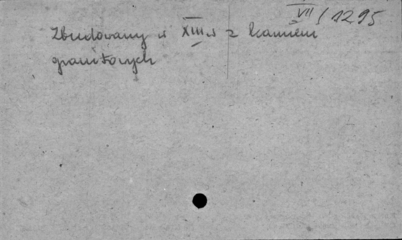 VII/1295
Zbudowany w XIII w z kamieni
granitowych